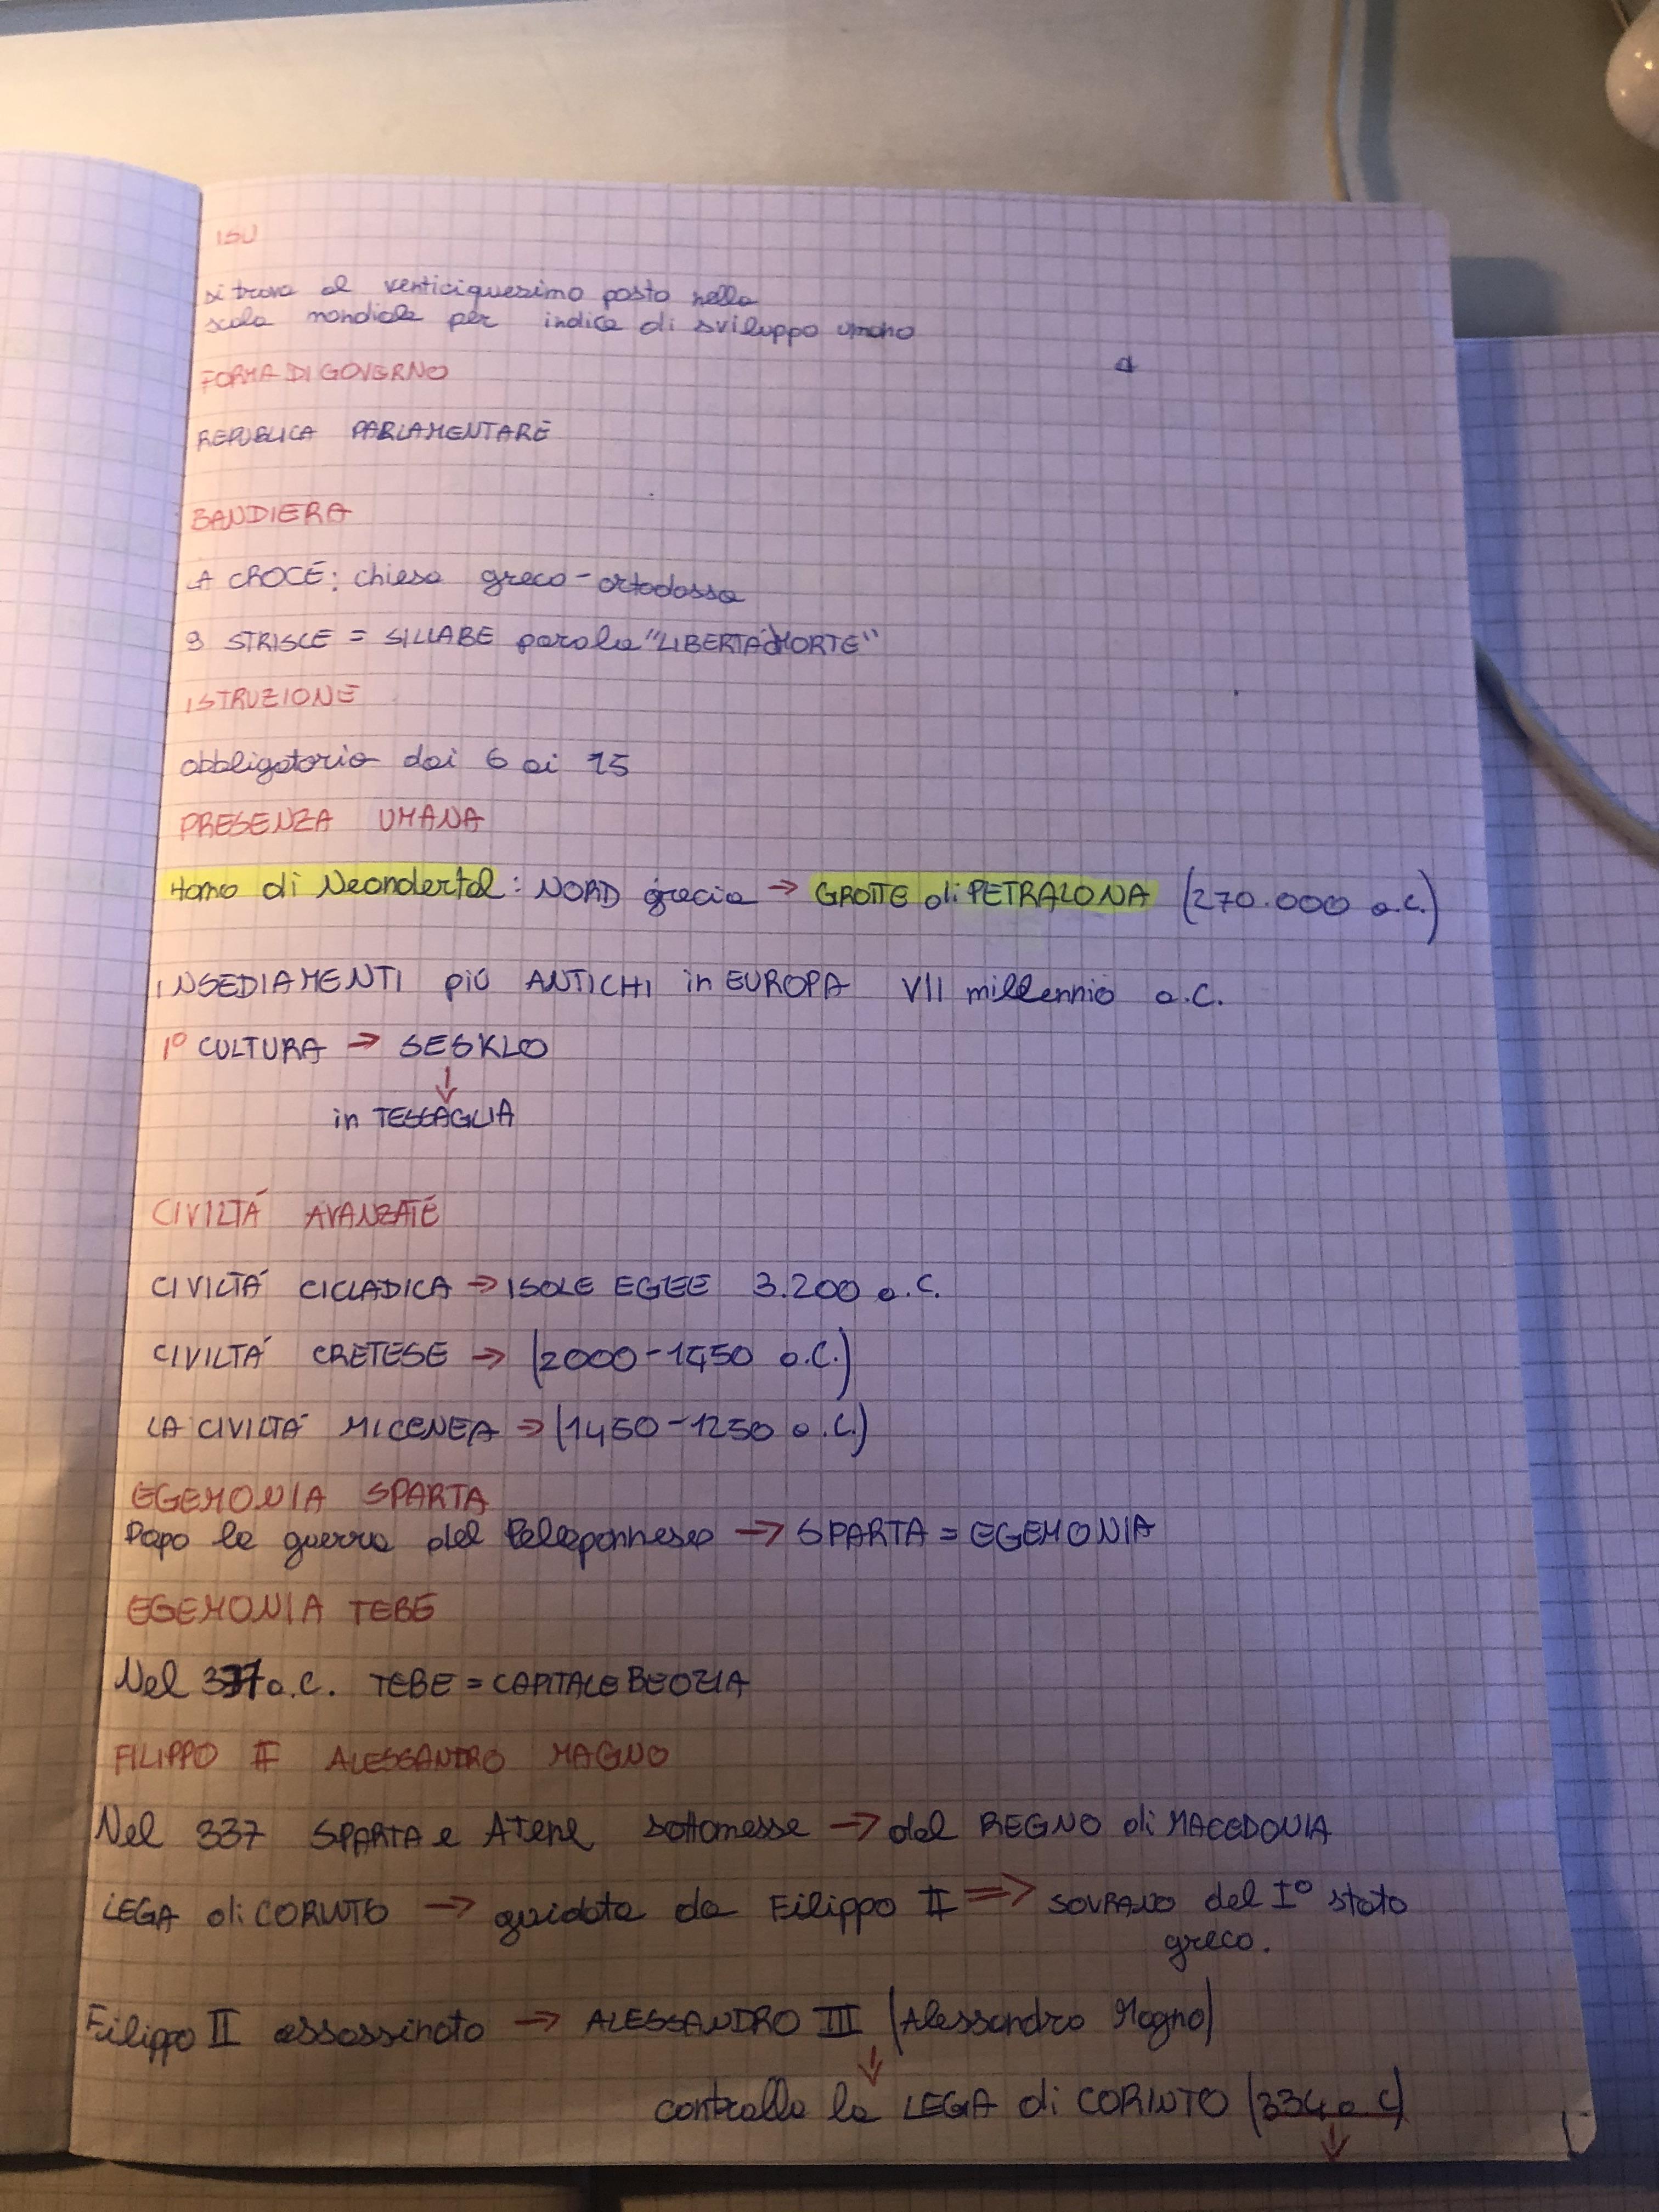 ISU
si trova al venticiquesimo posto nella
scala mondiale per indice di sviluppo umano
FORMA DI GOVERNO
REPUBLICA PARLAMENTARE
BANDIERA
LA CROCE: chiesa greco-ortodossa
9 STRISCE = SILLABE parola "LIBERTÀ o MORTE"
ISTRUZIONE
obbligatoria dai 6 ai 15
PRESENZA UMANA
Homo di Neandertal: NORD grecia → GROTTE di PETRALONA (270.000 a.C.)
INSEDIAMENTI più ANTICHI in EUROPA VII millennio a.C.
1° CULTURA → SESKLO
↓
in TESSAGLIA
CIVILTÁ AVANZATE
CIVILTÁ CICLADICA → ISOLE EGEE 3.200 a.C.
CIVILTÁ CRETESE → (2000-1450 a.C.)
LA CIVILTÁ MICENEA → (1450-1250 a.C.)
EGEMONIA SPARTA
Dopo la guerra del Peleponneso → SPARTA = EGEMONIA
EGEMONIA TEBE
Nel a.C. TEBE = CAPITALE BEOZIA
FILIPPO II ALESSANDRO MAGNO
Nel 337 SPARTA e Atene sottomesse → dal REGNO di MACEDONIA
LEGA di CORINTO → guidata da Filippo II ⇒ SOVRANO del I° stato
greco.
Filippo II assassinato → ALESSANDRO III (Alessandro Magno)
↓
controlla la LEGA di CORINTO (334 a.C)
↓